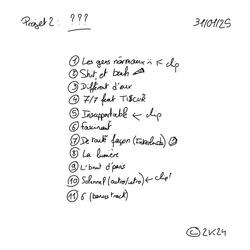 Projet 2 : ???
31/01/25
1 Les gens normaux ← clip
2 Shit et beuh
3 Différent d'eux
4 7/7 feat TISCUR
5 Insupportable ← clip
6 Fascinant
7 De toute façon (Interlude)
8 La lumière
9 L'bruit d'paris
10 (outro/intro) ← clip?
11 6 (bonus track)
© 2K24